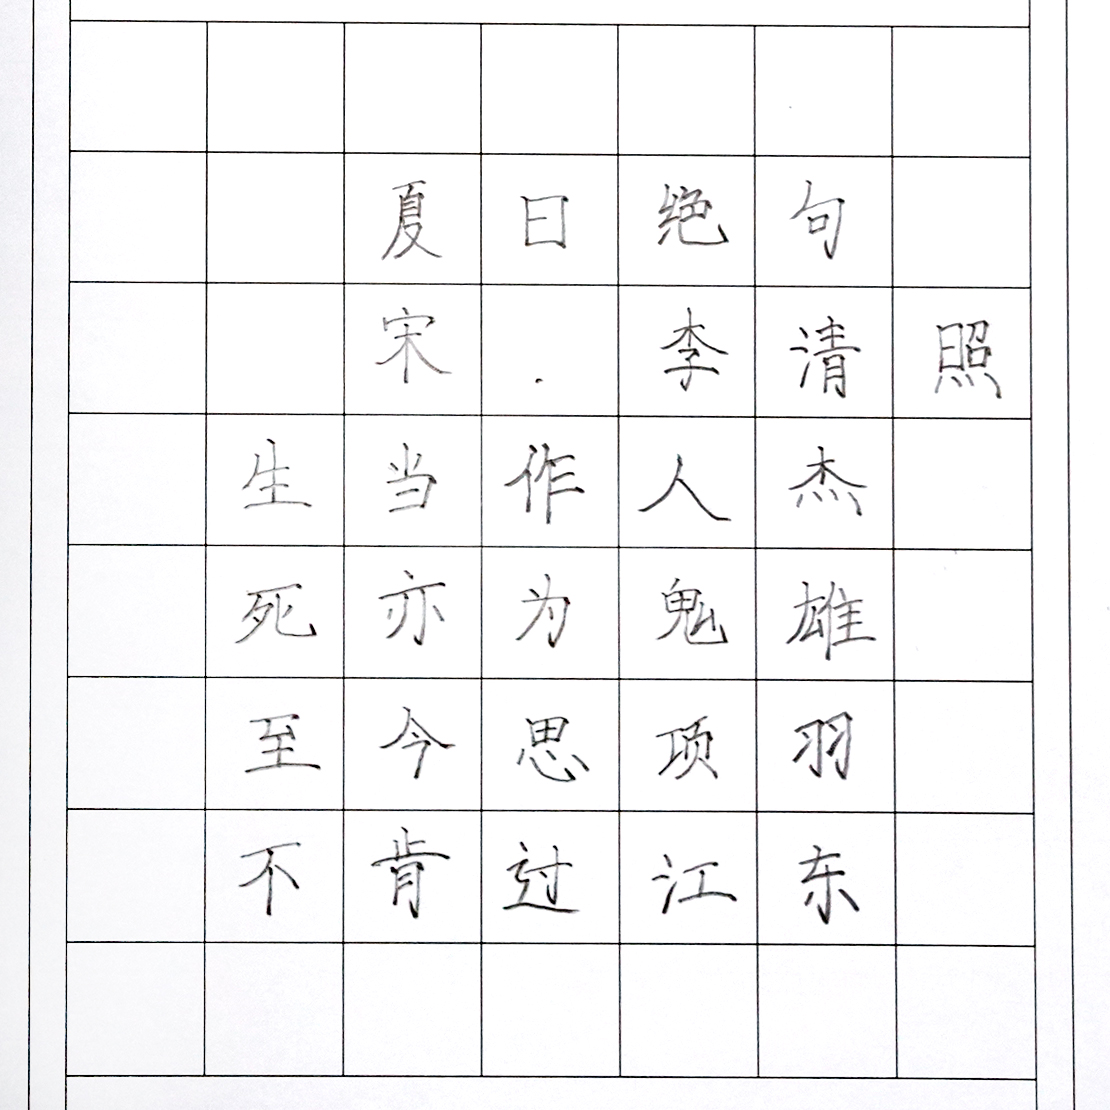 夏日绝句
宋.李清照
生当作人杰
死亦为鬼雄
至今思项羽
不肯过江东